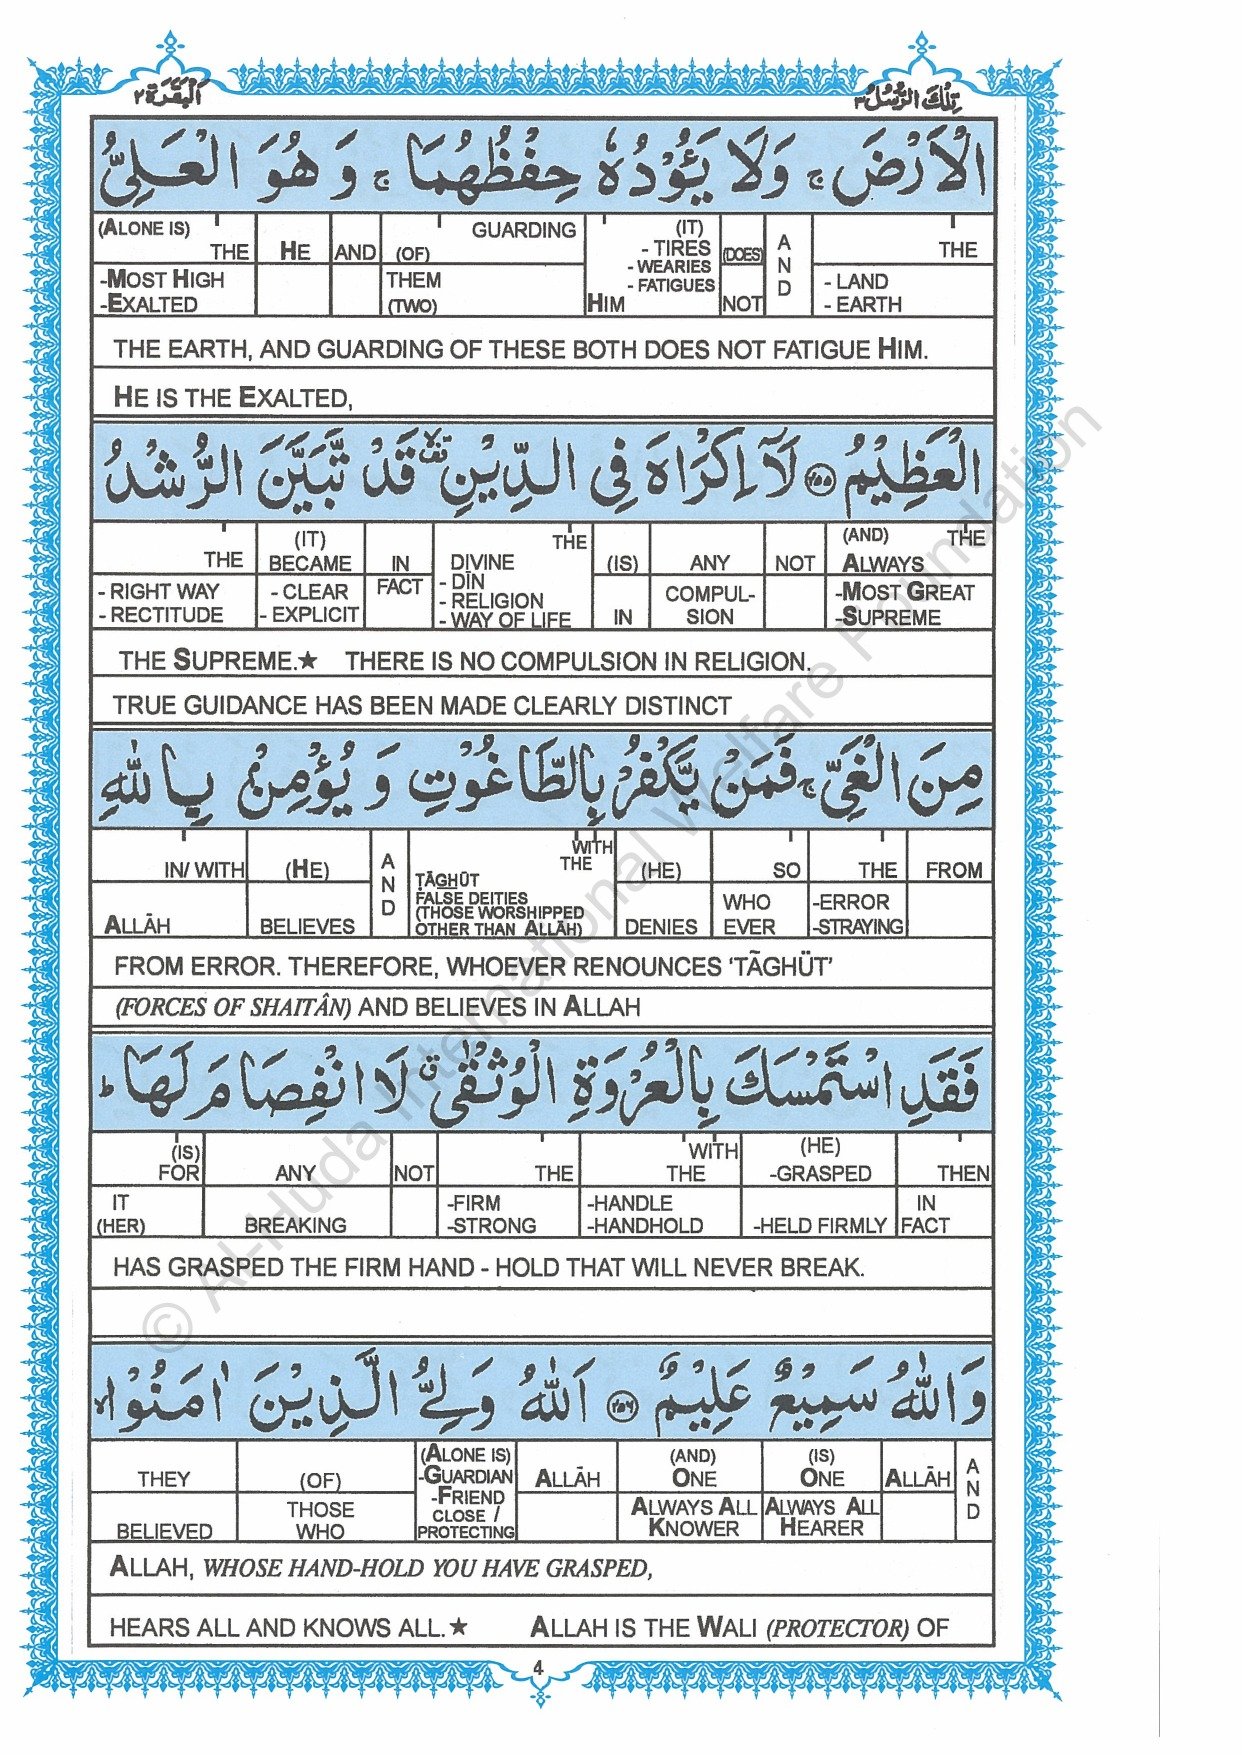 البقرة ٢
تلك الرسل ٣
الْاَرْضَ ۚ وَلَا يَـُٔوْدُهٗ حِفْظُهُمَا ۚ وَ هُوَ الْعَلِیُّ
(ALONE IS) THE HE AND (OF) GUARDING (IT) - TIRES - WEARIES - FATIGUES HIM (DOES) NOT AND THE
-MOST HIGH -EXALTED THEM (TWO) - LAND - EARTH
THE EARTH, AND GUARDING OF THESE BOTH DOES NOT FATIGUE HIM.
HE IS THE EXALTED,
الْعَظِيْمُ ﴿۲۵۵﴾ لَاۤ اِكْرَاهَ فِی الدِّيْنِ ۙ قَدْ تَّبَيَّنَ الرُّشْدُ
THE (IT) BECAME IN FACT THE DIVINE - DĪN - RELIGION - WAY OF LIFE (IS) IN ANY NOT (AND) THE ALWAYS
- RIGHT WAY - RECTITUDE - CLEAR - EXPLICIT COMPUL- SION -MOST GREAT -SUPREME
THE SUPREME.★ THERE IS NO COMPULSION IN RELIGION.
TRUE GUIDANCE HAS BEEN MADE CLEARLY DISTINCT
مِنَ الْغَیِّ ۚ فَمَنْ يَّكْفُرْ بِالطَّاغُوْتِ وَ يُؤْمِنْۢ بِاللّٰهِ
IN/ WITH (HE) AND WITH THE (HE) SO THE FROM
ALLĀH BELIEVES ṬĀGHŪT FALSE DEITIES (THOSE WORSHIPPED OTHER THAN ALLĀH) DENIES WHO EVER -ERROR -STRAYING
FROM ERROR. THEREFORE, WHOEVER RENOUNCES ‘TĀGHÜT’
(FORCES OF SHAITÂN) AND BELIEVES IN ALLAH
فَقَدِ اسْتَمْسَكَ بِالْعُرْوَةِ الْوُثْقٰی ۗ لَا انْفِصَامَ لَهَا ؕ
(IS) FOR ANY NOT THE WITH THE (HE) -GRASPED THEN
IT (HER) BREAKING -FIRM -STRONG -HANDLE -HANDHOLD -HELD FIRMLY IN FACT
HAS GRASPED THE FIRM HAND - HOLD THAT WILL NEVER BREAK.
وَاللّٰهُ سَمِيْعٌ عَلِيْمٌ ﴿۲۵۶﴾ اَللّٰهُ وَلِیُّ الَّذِيْنَ اٰمَنُوْا ۙ
THEY (OF) (ALONE IS) -GUARDIAN -FRIEND CLOSE / PROTECTING ALLĀH (AND) ONE (IS) ONE ALLĀH AND
BELIEVED THOSE WHO ALWAYS ALL KNOWER ALWAYS ALL HEARER
ALLAH, WHOSE HAND-HOLD YOU HAVE GRASPED,
HEARS ALL AND KNOWS ALL.★ ALLAH IS THE WALI (PROTECTOR) OF
4
© Al-Huda International Welfare Foundation